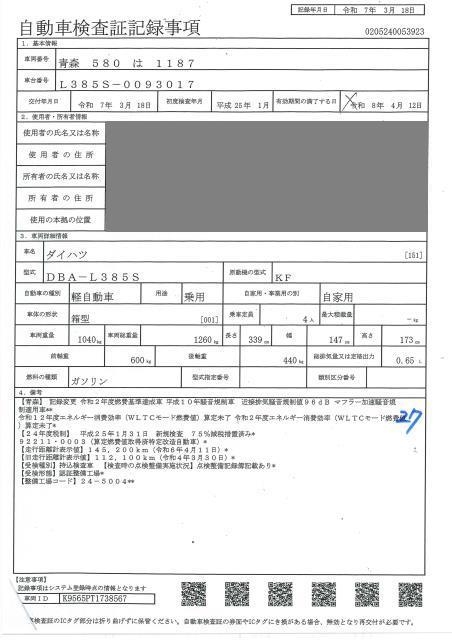 記録年月日 令和 7年 3月 18日
自動車検査証記録事項
0205240053923
1．基本情報
車両番号 青森 580 は 1187
車台番号 L385S-0093017
交付年月日 令和 7年 3月 18日 初度検査年月 平成 25年 1月 有効期間の満了する日 令和 8年 4月 12日
2．使用者・所有者情報
使用者の氏名又は名称
使用者の住所
所有者の氏名又は名称
所有者の住所
使用の本拠の位置
3．車両詳細情報
車名 ダイハツ [151]
型式 DBA-L385S 原動機の型式 KF
自動車の種別 軽自動車 用途 乗用 自家用・事業用の別 自家用
車体の形状 箱型 [001] 乗車定員 4人 最大積載量 -kg
車両重量 1040kg 車両総重量 1260kg 長さ 339cm 幅 147cm 高さ 173cm
前軸重 600kg 後軸重 440kg 総排気量又は定格出力 0.65 L
燃料の種類 ガソリン 型式指定番号 類別区分番号
4．備考
【青森】 記録変更 令和2年度燃費基準達成車 平成10年騒音規制車 近接排気騒音規制値96dB マフラー加速騒音規
制適用車**
令和12年度エネルギー消費効率（WLTCモード燃費値）算定未了 令和2年度エネルギー消費効率（WLTCモード燃費値
）算定未了*
27
【24年度税制】 平成25年1月31日 新規検査 75%減税措置済み*
92211・0003（算定燃費値取得済特定改造自動車）*
【走行距離計表示値】145，200km（令和6年4月11日）*
【旧走行距離計表示値】112，100km（令和4年3月30日）*
【受検種別】持込検査車 【検査時の点検整備実施状況】点検整備記録簿記載あり*
【受検形態】認証整備工場*
【整備工場コード】24-5004**
【注意事項】
記録事項はシステム登録時点の情報となります
車両ID K9565PT1738567
車検査証のICタグ部分は折り曲げずに保管ください。自動車検査証の券面やICタグにき損がある場合、無効となり再交付が必要です。